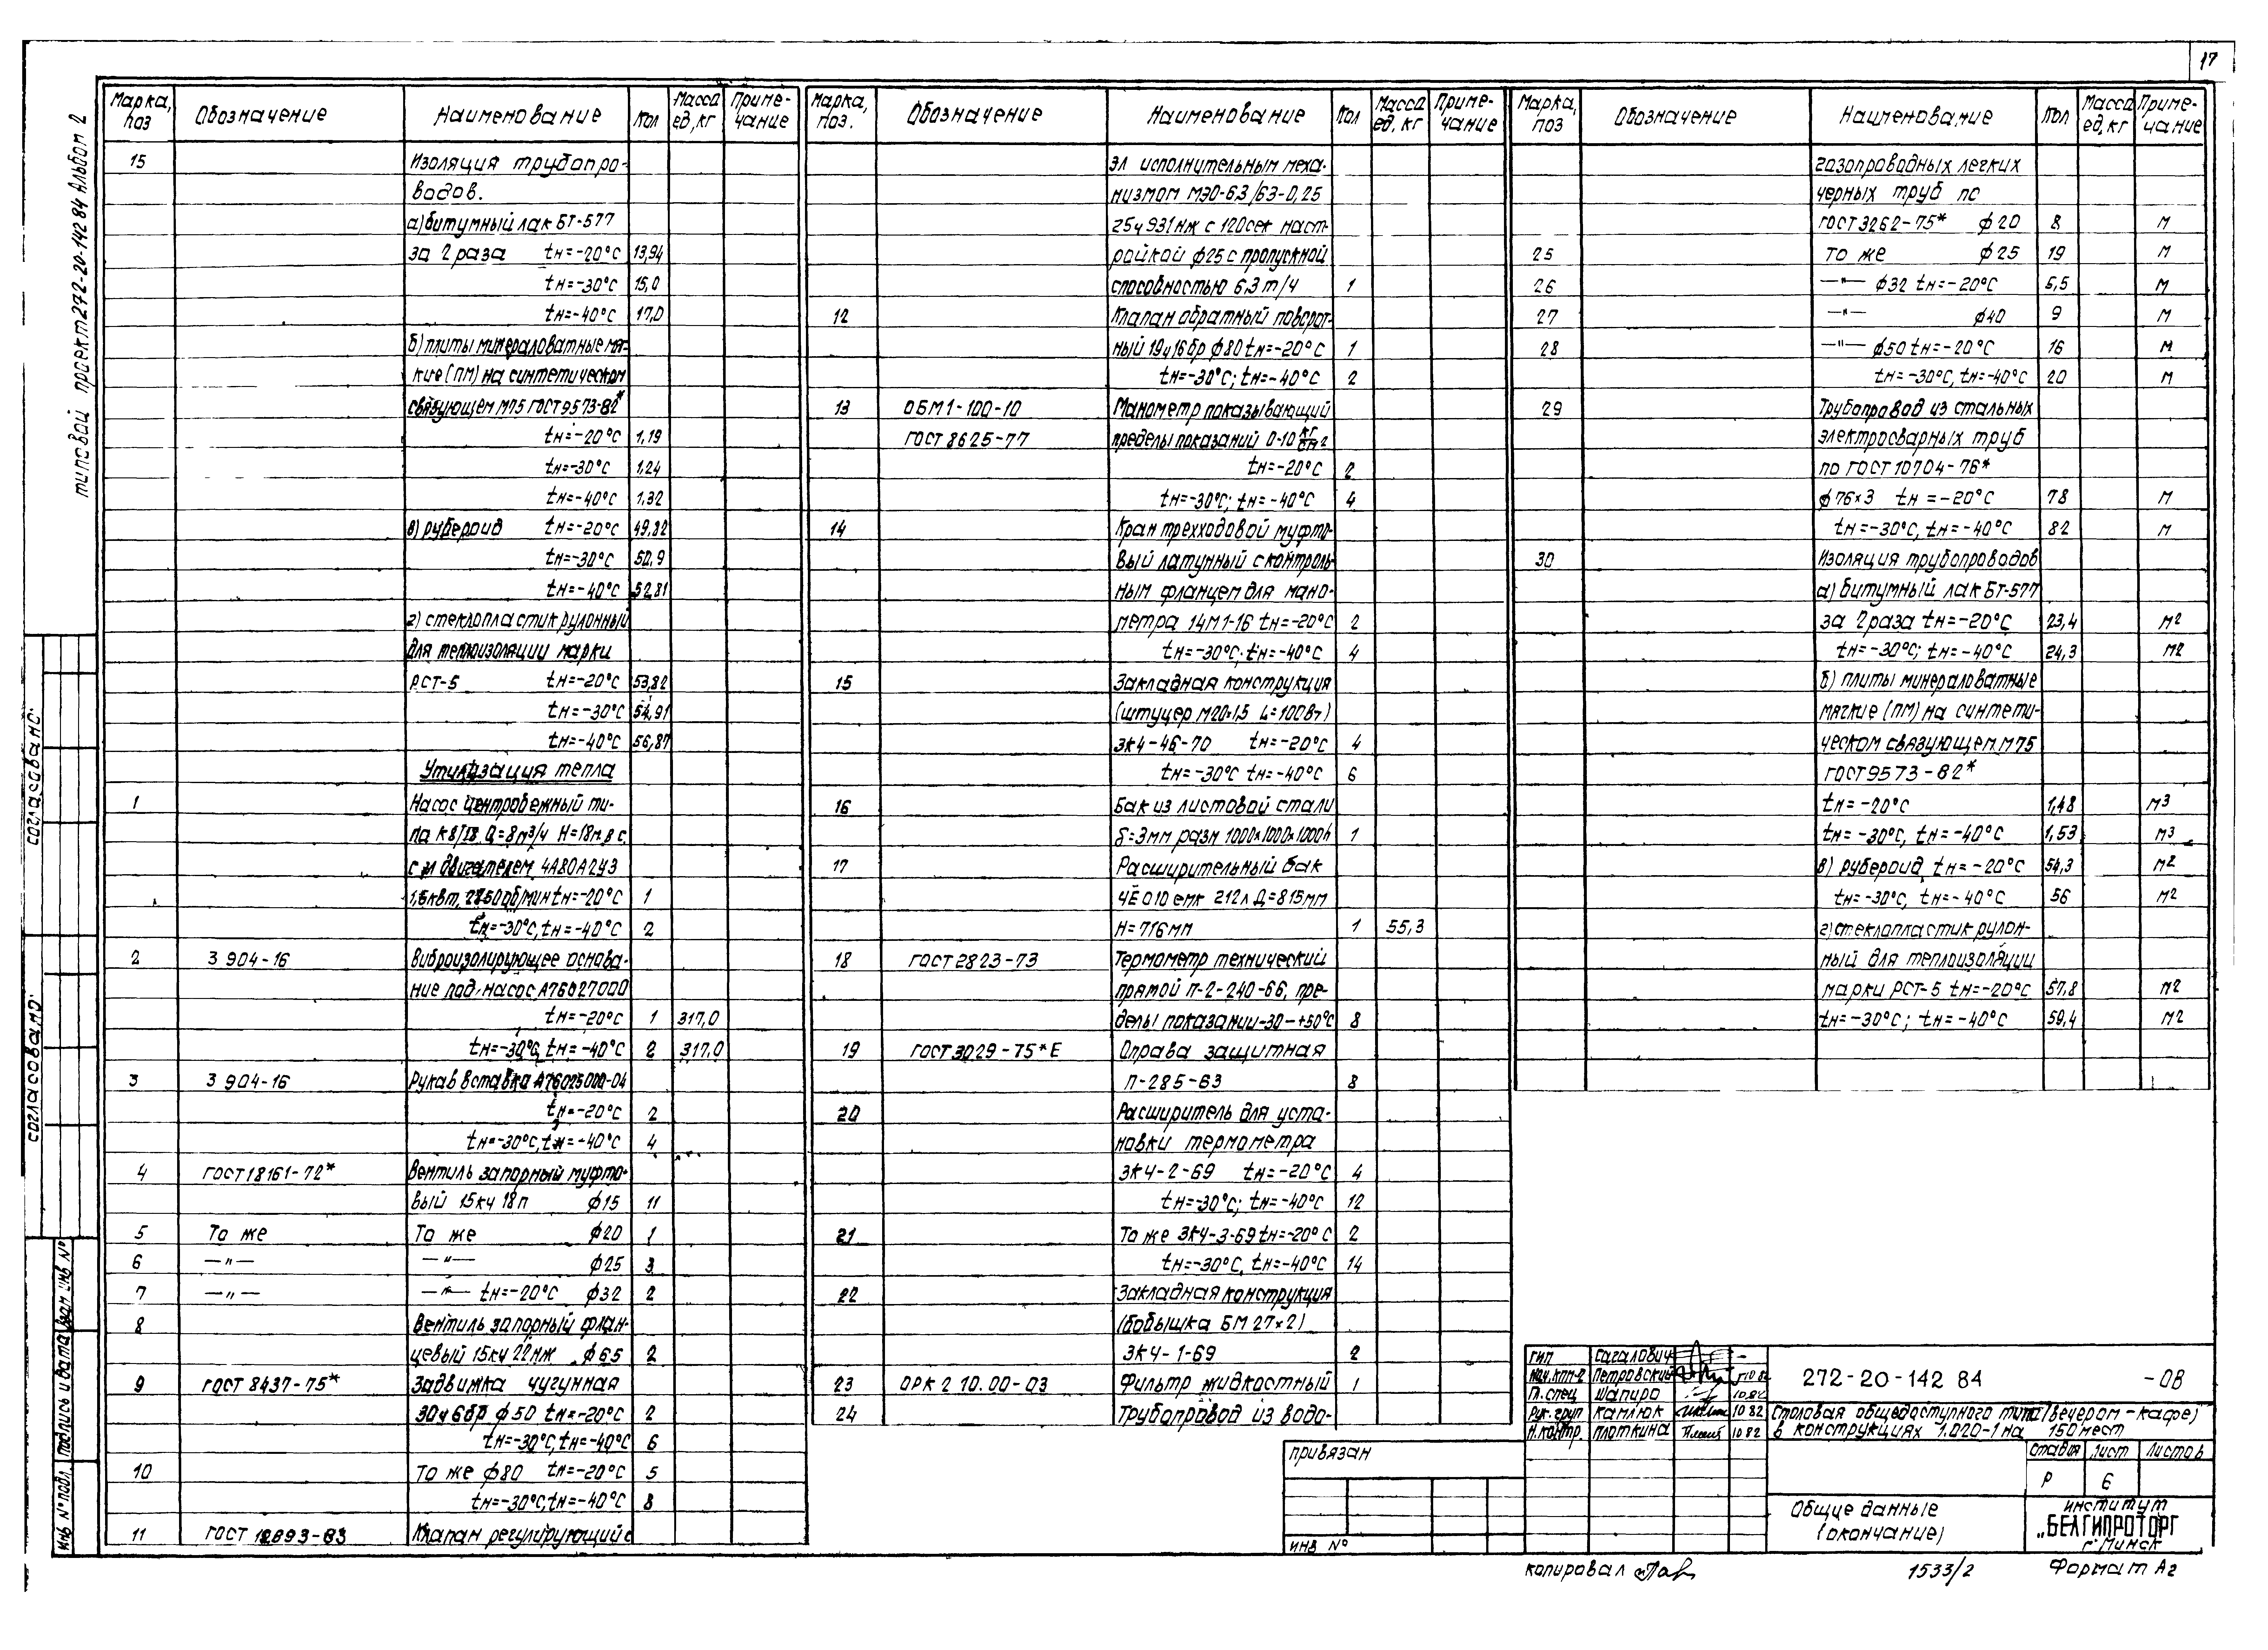 17
типовой проект 272-20-142 84 Альбом 2
Марка, поз Обозначение Наименование Кол Масса ед, кг Приме-чание
15 Изоляция трубопро-
водов.
а) битумный лак БТ-577
за 2 раза tн=-20°С 13,94
tн=-30°С 15,0
tн=-40°С 17,0
б) плиты минераловатные мяг-
кие (ПМ) на синтетическом
связующем М75 ГОСТ 9573-82*
tн=-20°С 1,19
tн=-30°С 1,24
tн=-40°С 1,32
в) рубероид tн=-20°С 49,82
tн=-30°С 50,9
tн=-40°С 52,81
г) стеклопластик рулонный
для теплоизоляции марки
РСТ-5 tн=-20°С 53,82
tн=-30°С 54,91
tн=-40°С 56,87
Утилизация тепла
1 Насос центробежный ти-
па К8/18 Q=8м3/ч Н=18м.в.с.
с эл двигателем 4А80А2У3
1,5квт, 2850об/мин tн=-20°С 1
tн=-30°С, tн=-40°С 2
2 3 904-16 Виброизолирующее основа-
ние под насос А76027000
tн=-20°С 1 317,0
tн=-30°С, tн=-40°С 2 317,0
3 3 904-16 Рукав вставка А76025000-04
tн=-20°С 2
tн=-30°С, tн=-40°С 4
4 ГОСТ 18161-72* Вентиль запорный муфто-
вый 15кч 18п ф15 11
5 То же То же ф20 1
6 —"— —"— ф25 3
7 —"— —"— tн=-20°С ф32 2
8 Вентиль запорный флан-
цевый 15кч 22нж ф65 2
9 ГОСТ 8437-75* Задвижка чугунная
30ч6бр ф50 tн=-20°С 2
tн=-30°С, tн=-40°С 6
10 То же ф80 tн=-20°С 5
tн=-30°С, tн=-40°С 8
11 ГОСТ 12893-83 Клапан регулирующий с
Марка, поз. Обозначение Наименование Кол Масса ед, кг Приме-чание
эл исполнительным меха-
низмом МЭО-6,3/63-0,25
25ч931нж с 120сек наст-
ройкой ф25 с пропускной
способностью 6,3 т/ч 1
12 Клапан обратный поворот-
ный 19ч16бр ф80 tн=-20°С 1
tн=-30°С; tн=-40°С 2
13 ОБМ1-100-10 Манометр показывающий
ГОСТ 8625-77 пределы показаний 0-10 кг/см2
tн=-20°С 2
tн=-30°С; tн=-40°С 4
14 Кран трехходовой муфто-
вый латунный с контроль-
ным фланцем для мано-
метра 14М1-16 tн=-20°С 2
tн=-30°С; tн=-40°С 4
15 Закладная конструкция
(штуцер М20×1,5 L=100Вт)
ЗК4-46-70 tн=-20°С 4
tн=-30°С tн=-40°С 6
16 Бак из листовой стали
δ=3мм разм 1000×1000×1000h 1
17 Расширительный бак
4Е 010 емк 212л Д=815мм
Н=716мм 1 55,3
18 ГОСТ 2823-73 Термометр технический
прямой П-2-240-66, пре-
делы показаний -30-+50°С 8
19 ГОСТ 3029-75*Е Оправа защитная
П-285-63 8
20 Расширитель для уста-
новки термометра
ЗК4-2-69 tн=-20°С 4
tн=-30°С; tн=-40°С 12
21 То же ЗК4-3-69 tн=-20°С 2
tн=-30°С, tн=-40°С 14
22 Закладная конструкция
(бобышка БМ 27×2)
ЗК4-1-69 2
23 ОРК 2 10.00-03 Фильтр жидкостный 1
24 Трубопровод из водо-
Марка, поз Обозначение Наименование Кол Масса ед, кг Приме-чание
газопроводных легких
черных труб по
ГОСТ 3262-75* ф20 8 м
25 то же ф25 19 м
26 —"— ф32 tн=-20°С 5,5 м
27 —"— ф40 9 м
28 —"— ф50 tн=-20°С 16 м
tн=-30°С, tн=-40°С 20 м
29 Трубопровод из стальных
электросварных труб
по ГОСТ 10704-76*
ф76×3 tн=-20°С 78 м
tн=-30°С, tн=-40°С 82 м
30 Изоляция трубопроводов
а) битумный лак БТ-577
за 2 раза tн=-20°С 23,4 м2
tн=-30°С; tн=-40°С 24,3 м2
б) плиты минераловатные
мягкие (ПМ) на синтети-
ческом связующем М75
ГОСТ 9573-82*
tн=-20°С 1,48 м3
tн=-30°С, tн=-40°С 1,53 м3
в) рубероид tн=-20°С 54,3 м2
tн=-30°С, tн=-40°С 56 м2
г) стеклопластик рулон-
ный для теплоизоляции
марки РСТ-5 tн=-20°С 57,8 м2
tн=-30°С; tн=-40°С 59,4 м2
согласовано:
согласовано:
Инв № подл. Подпись и дата Взам инв №
привязан
инв №
ГИП Сагалович
Нач.КПМ-2 Петровский 10 82
Гл.спец Шапиро 10 82
Рук.груп Камлюк 10 82
Н.контр. Плоткина 10 82
272-20-142 84 -ОВ
Столовая общедоступного типа (вечером-кафе)
в конструкциях 1.020-1 на 150 мест
Стадия Лист Листов
Р 6
Общие данные
(окончание)
институт
„БЕЛГИПРОТОРГ
г. Минск
копировал
1533/2
Формат А2